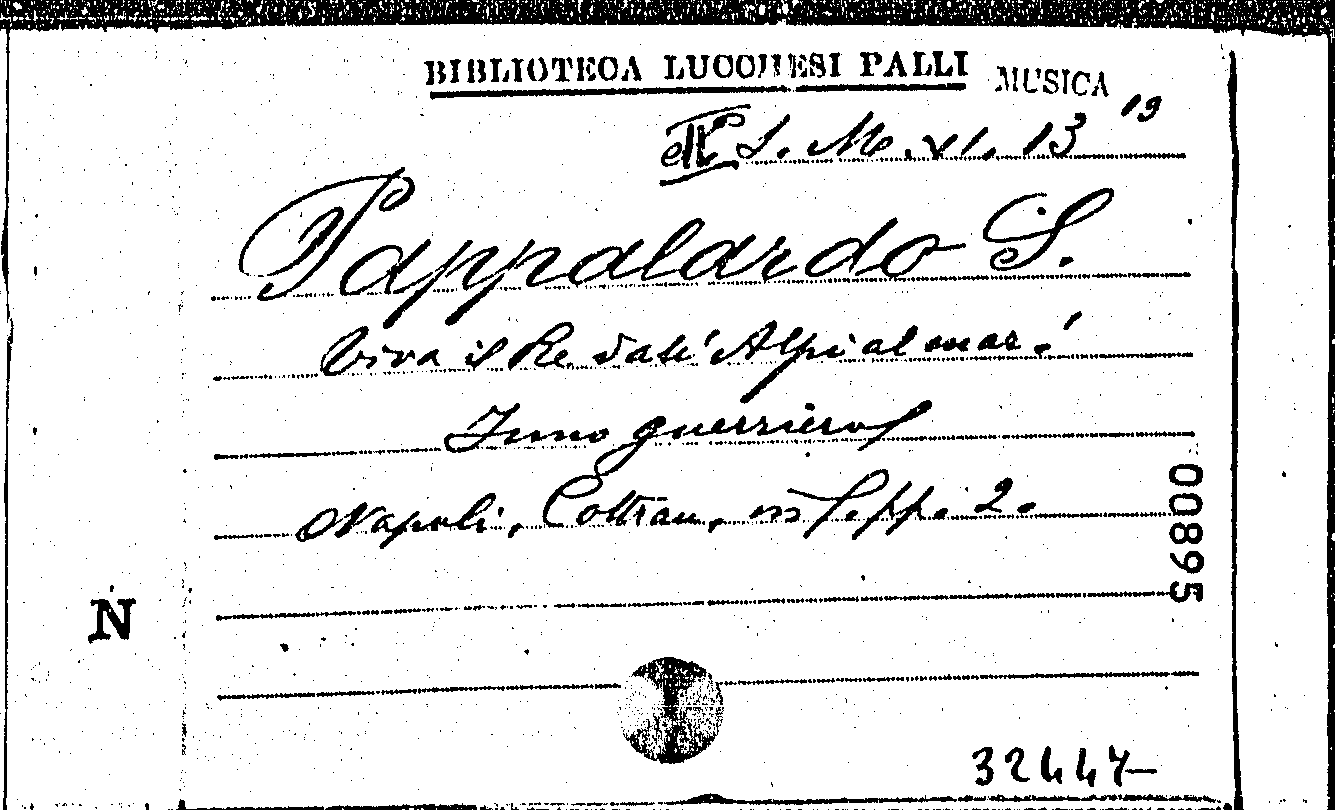 BIBLIOTECA LUCCHESI PALLI MUSICA
S. M. XI. 13 19
Pappalardo S.
Viva il Re dall' Alpi al mar!
Inno guerriero
Napoli, Cottrau, in f. pp. 2.
00895
N
32447